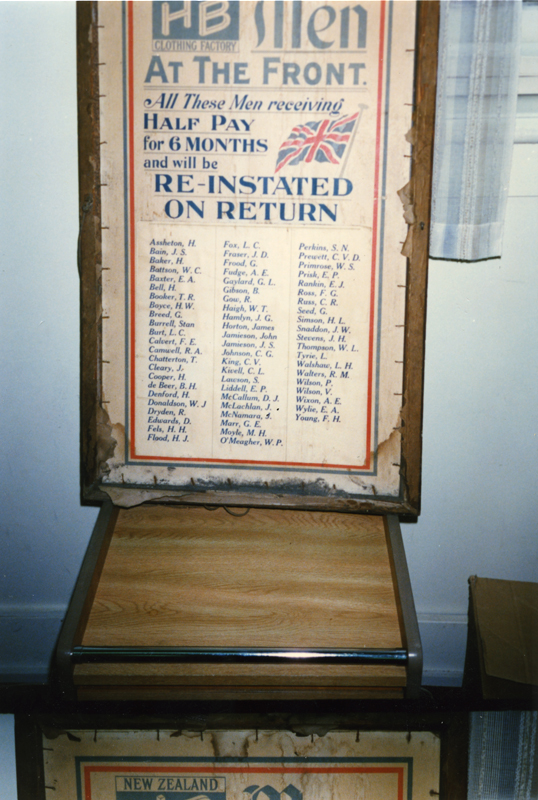 HB Men
CLOTHING FACTORY
AT THE FRONT.
All These Men receiving
HALF PAY
for 6 MONTHS
and will be
RE-INSTATED
ON RETURN
Assheton, H.
Bain, J. S.
Baker, H.
Battson, W. C.
Baxter, E. A.
Bell, H.
Booker, T. R.
Boyce, H. W.
Breed, G.
Burrell, Stan
Burt, L. C.
Calvert, F. E.
Camwell, R. A.
Chatterton, T.
Cleary, J.
Cooper, H.
de Beer, B. H.
Denford, H.
Donaldson, W. J
Dryden, R.
Edwards, D.
Fels, H. H.
Flood, H. J.
Fox, L. C.
Fraser, J. D.
Frood, G.
Fudge, A. E.
Gaylard, G. L.
Gibson, B.
Gow, R.
Haigh, W. T.
Hamlyn, J. G.
Horton, James
Jamieson, John
Jamieson, J. S.
Johnson, C. G.
King, C. V.
Kivell, C. L.
Lawson, S.
Liddell, E. P.
McCallum, D. J.
McLachlan, J.
McNamara, J.
Marr, G. E.
Moyle, M. H.
O'Meagher, W. P.
Perkins, S. N.
Prewett, C. V. D.
Primrose, W. S.
Prisk, E. P.
Rankin, E. J.
Ross, F. G.
Russ, C. R.
Seed, G.
Simson, H. L.
Snaddon, J. W.
Stevens, J. H.
Thompson, W. L.
Tyrie, L.
Walshaw, L. H.
Walters, R. M.
Wilson, P.
Wilson, V.
Wixon, A. E.
Wylie, E. A.
Young, F. H.
NEW ZEALAND